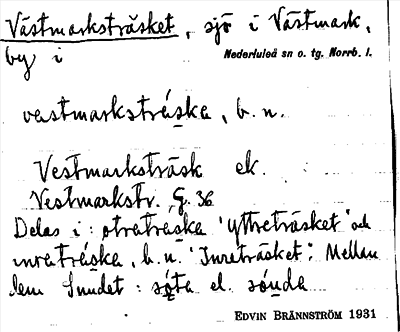 Västmarksträsket, sjö i Västmark,
by i Nederluleå sn o. tg. Norrb. l.
vastmarkstráska, b. n.
Vestmarksträsk ek.
Vestmarkstr. G. 36
Delas i: otratraska 'Yttreträsket' och
inratráska, b. n. 'Inreträsket'. Mellan
dem Sundet: sóta el. sónda
EDVIN BRÄNNSTRÖM 1931